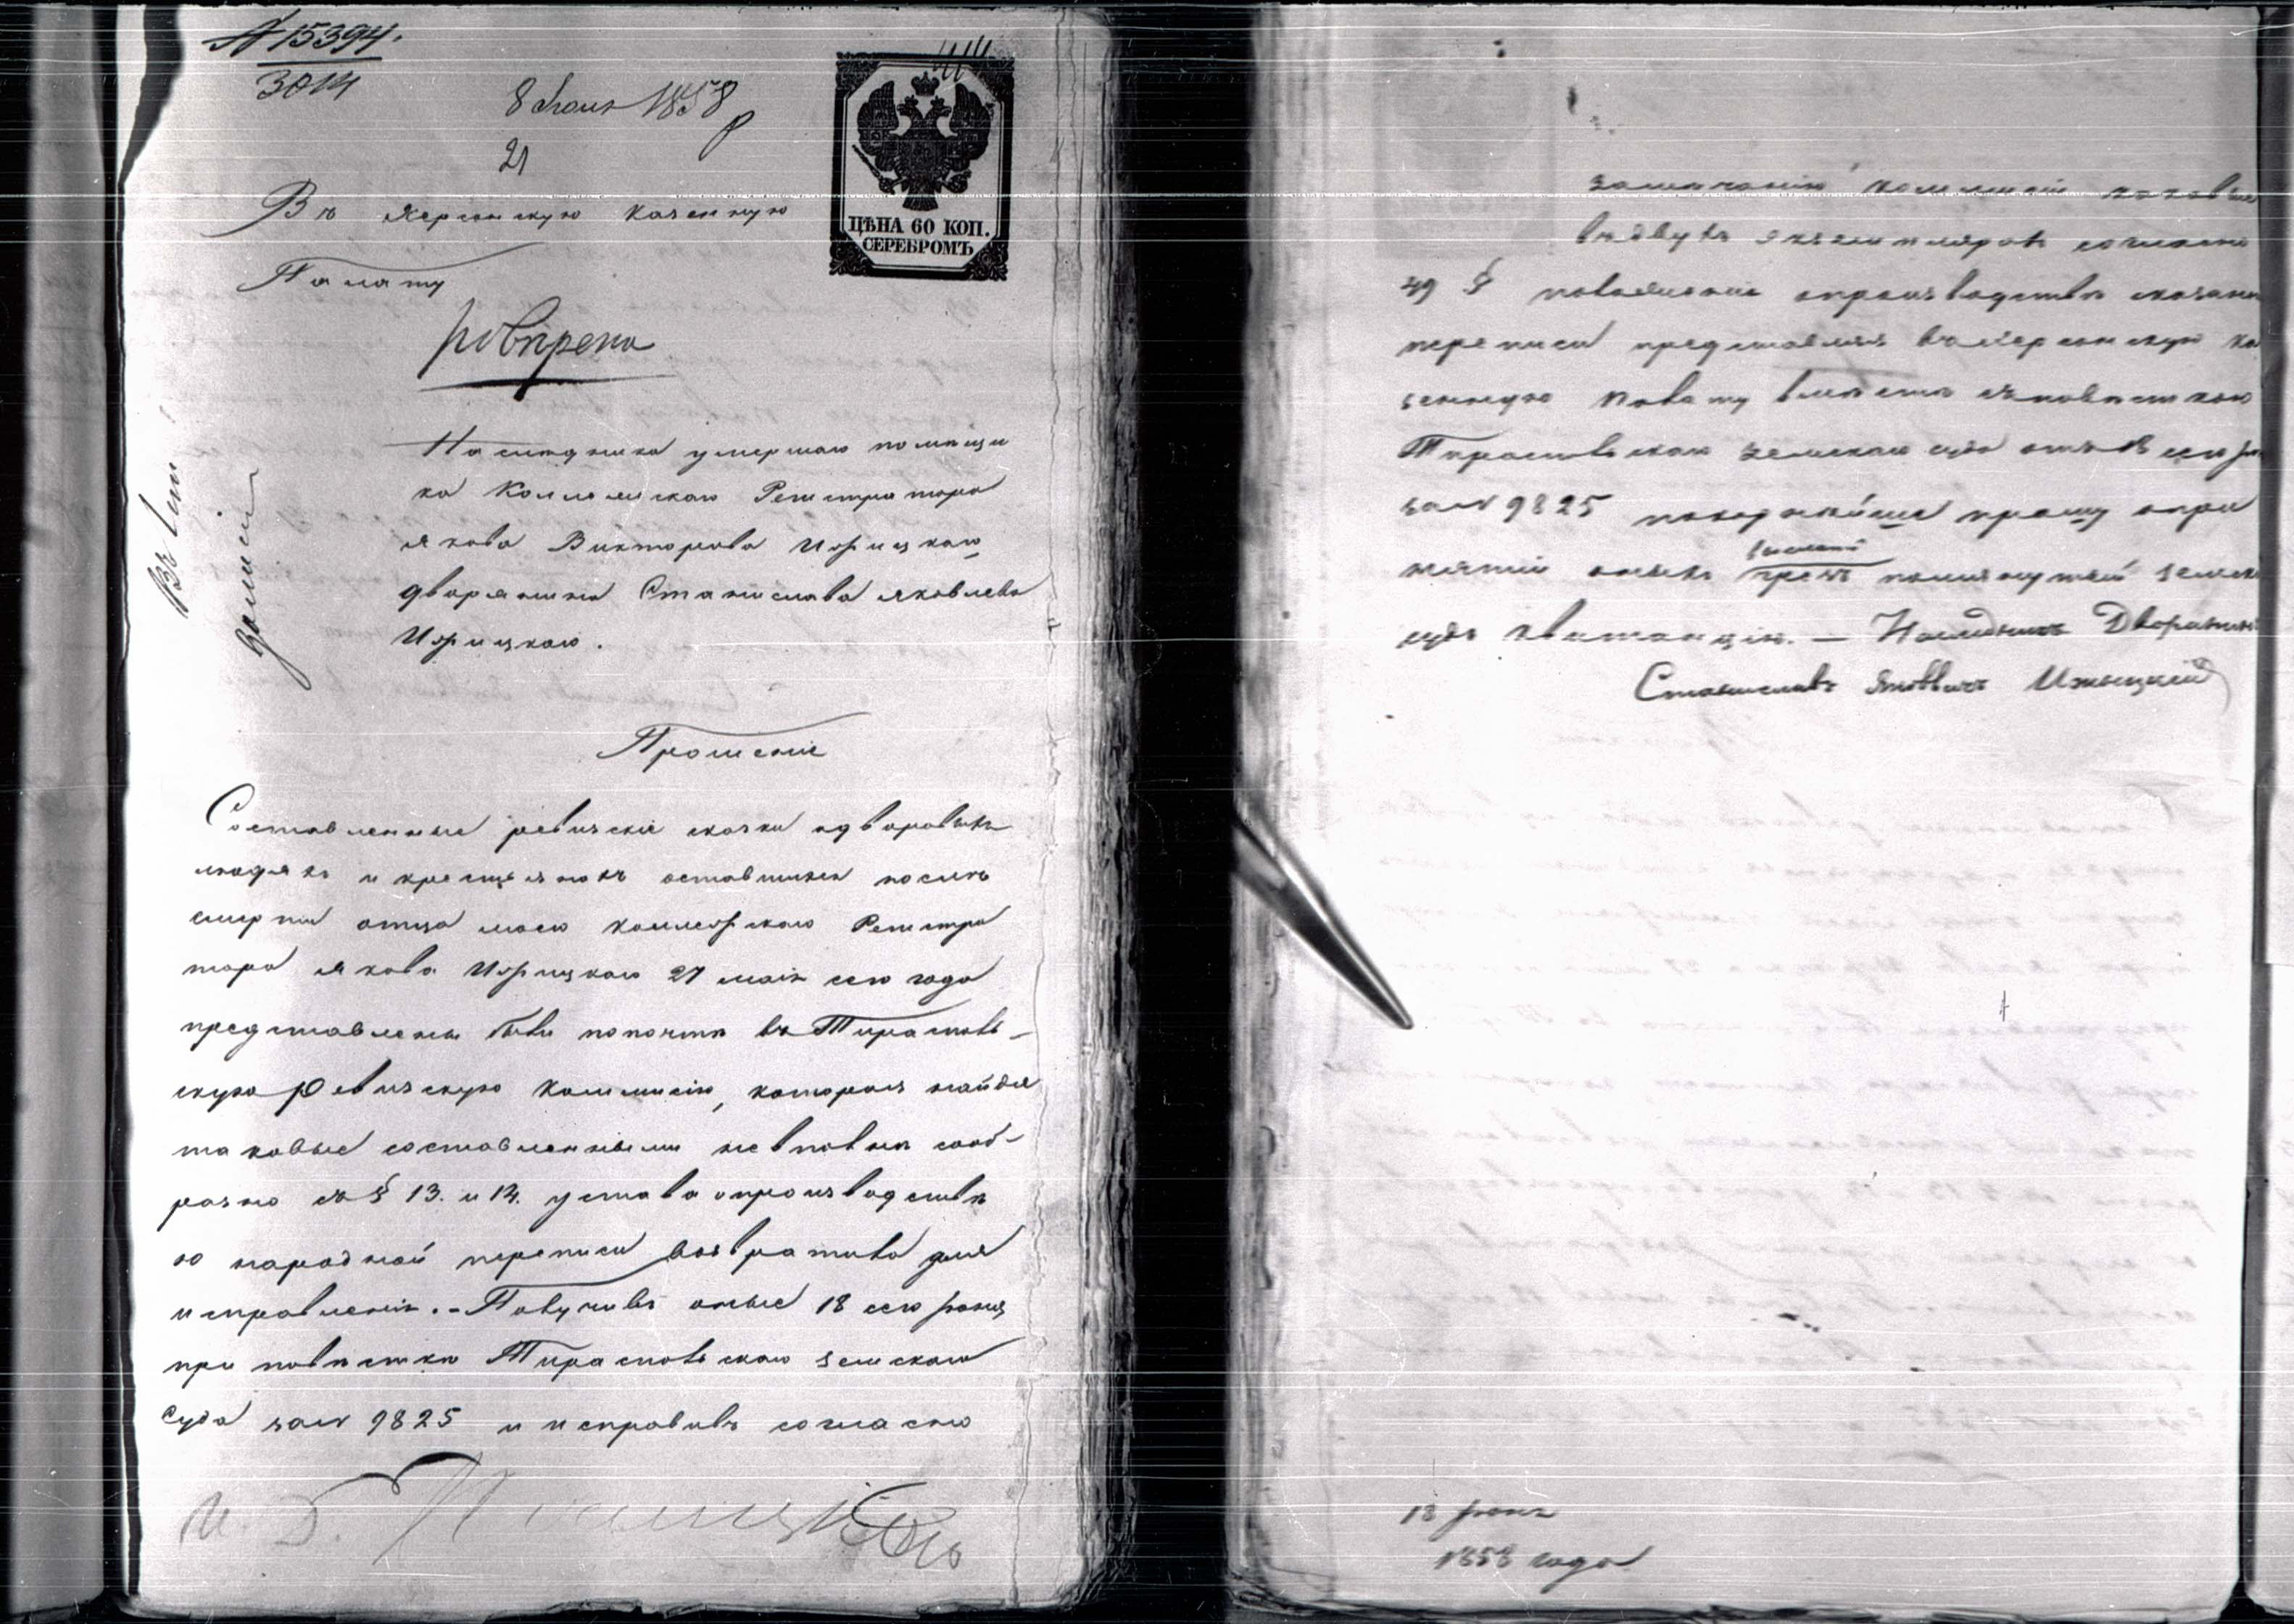 № 15394.
3014
8 Июля 1858
21
ЦѢНА 60 КОП.
СЕРЕБРОМЪ
Въ Херсонскую Казенную
Палату
Наслѣдника умершаго помѣщи
ка Коллежскаго Регистратора
Якова Викторова Ижицкаго
дворянина Станислава Яковлева
Ижицкаго.
Прошеніе
Составленные ревизскіе сказки одворовыхъ
людяхъ и крестьянахъ оставшихся послѣ
смерти отца моего Коллежскаго Регистра
тора Якова Ижицкаго 27 маія сего года
представлены были попочтѣ въ Тирасполь-
скую Ревизскую Коммисію, которая найдя
таковые составленными невполнѣ сооб-
разно съ § 13. и 14. устава опроизводствѣ
10 народной переписи возвратила для
исправленія. - Получивъ оные 18 сего іюня
при повѣсткѣ Тираспольскаго Земскаго
Суда за № 9825 и исправивъ согласно
замѣчанію Коммисіи таковые
въдвухъ экземплярахъ согласно
49 § положенія опроизводствѣ сказанной
переписи представляя въХерсонскую Ка
зенную Палату вмѣстѣ съповѣсткою
Тираспольскаго Земскаго суда отъ 18 сего
за № 9825 покорнѣйше прошу опри
нятіи оныхъ выслать
чрезъ помянутый Земскій
судъ квитанцію. — Наслѣдникъ Дворянинъ
Станиславъ Яковлевъ Ижицкій
18 іюня
1858 года